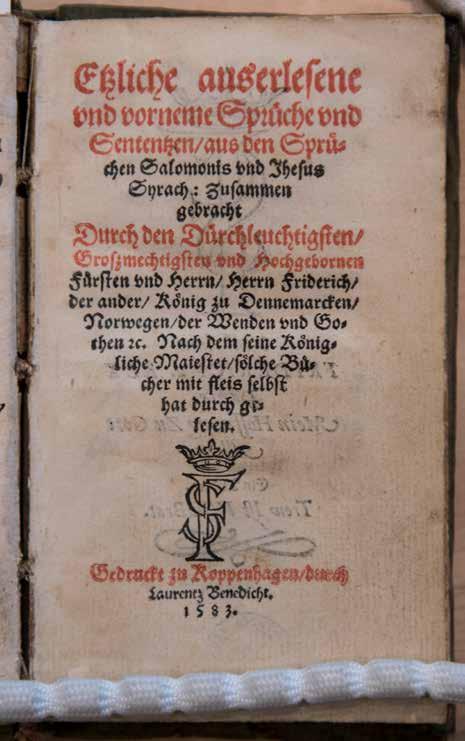 Etzliche auserlesene
vnd vorneme Sprüche vnd
Sententzen/aus den Sprü-
chen Salomonis vnd Jhesus
Syrach: Zusammen
gebracht
Durch den Dürchleuchtigsten/
Großmechtigsten vnd Hochgebornen
Fürsten vnd Herrn/ Herrn Friderich/
der ander/ König zu Dennemarcken/
Norwegen/der Wenden vnd Go-
then ꝛc. Nach dem seine König-
liche Maiestet/sölche Bü-
cher mit fleis selbst
hat durch ge-
lesen.
Gedruckt zu Koppenhagen/durch
Laurentz Benedicht.
1583.